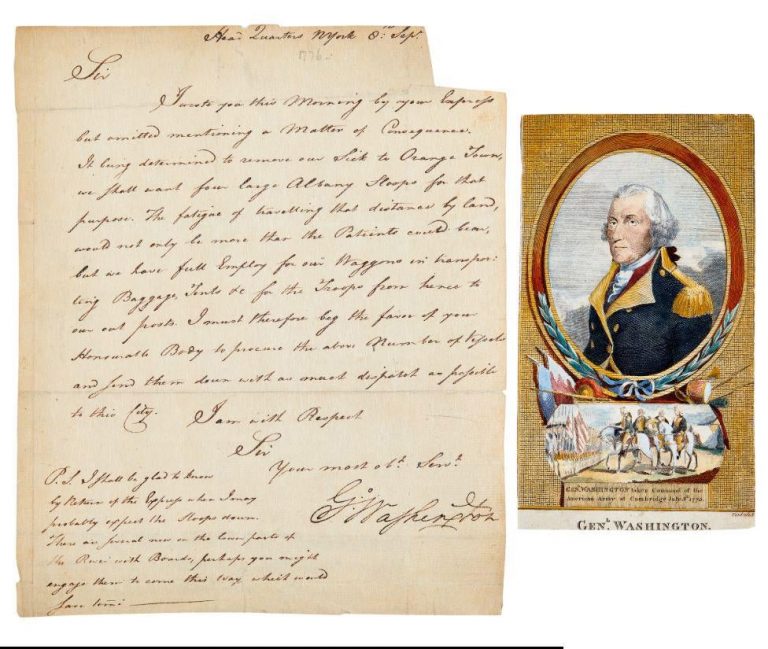 Head Quarters NYork 8th Sepr.
1776.
Sir
I wrote you this Morning by your Express
but omitted mentioning a Matter of Consequence.
It being determined to remove our Sick to Orange Town,
we shall want four large Albany Sloops for that
purpose. The fatigue of travelling that distance by land,
would not only be more than the Patients could bear,
but we have full Employ for our Waggons in transpor-
ting Baggage, Tents &c for the Troops from hence to
our out posts. I must therefore beg the favor of your
Honourable Body to procure the above Number of Vessels
and send them down with as much dispatch as possible
to this City. I am with Respect
Sir
Your most obt. Servt.
Go Washington
P.S. I shall be glad to know
by Return of the Express when I may
probably expect the Sloops down.
There are several now in the lower parts of
the River with Boards, perhaps you might
engage them to come this way which would
save time
GENL. WASHINGTON taken Command of the
American Army at Cambridge July 3d 1775.
GENL. WASHINGTON.